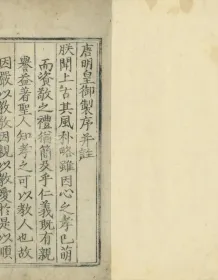 唐明皇御製序并註
朕聞上古其風朴略雖因心之孝已萌
而資敬之禮猶簡及乎仁義既有親
譽益著聖人知孝之可以教人也故
因嚴以教敬因親以教愛於是以順